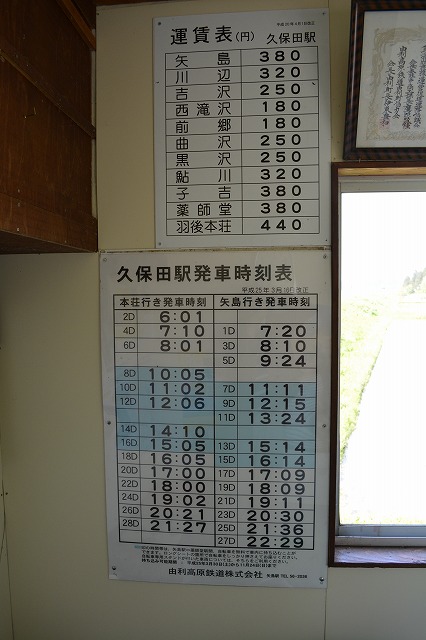 運賃表(円) 久保田駅
矢島 380
川辺 320
吉沢 250
西滝沢 180
前郷 180
曲沢 250
黒沢 250
鮎川 320
子吉 380
薬師堂 380
羽後本荘 440
久保田駅発車時刻表
平成25年3月16日改正
本荘行き発車時刻 矢島行き発車時刻
2D 6:01
4D 7:10 1D 7:20
6D 8:01 3D 8:10
5D 9:24
8D 10:05
10D 11:02 7D 11:11
12D 12:06 9D 12:15
11D 13:24
14D 14:10
16D 15:05 13D 15:14
18D 16:05 15D 16:14
20D 17:00 17D 17:09
22D 18:00 19D 18:09
24D 19:02 21D 19:11
26D 20:21 23D 20:30
28D 21:27 25D 21:36
27D 22:29
由利高原鉄道株式会社 矢島駅 TEL 56-2036